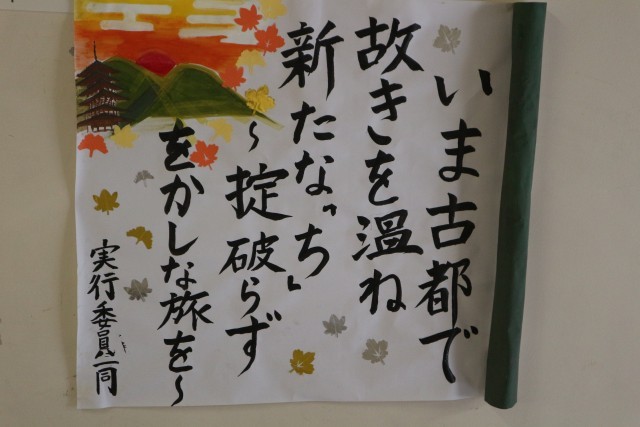 いま古都で
故きを温ね
新たな「ち」
～掟破らず
をかしな旅を～
実行委員一同